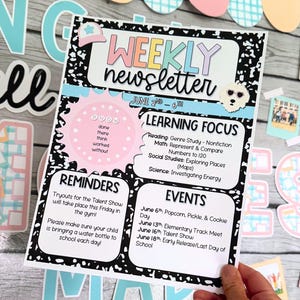 WEEKLY
newsletter
LEARNING FOCUS
done
there
think
worked
without
Reading: Genre Study - Nonfiction
Math: Represent & Compare
Numbers to 120
Social Studies: Exploring Places
(Maps)
Science: Investigating Energy
REMINDERS
Tryouts for the Talent Show
will take place this Friday in
the gym!
Please make sure your child
is bringing a water bottle to
school each day!
EVENTS
June 6th: Popcorn, Pickle, & Cookie
Day
June 13th: Elementary Track Meet
June 16th: Talent Show
June 18th: Early Release/Last Day of
School